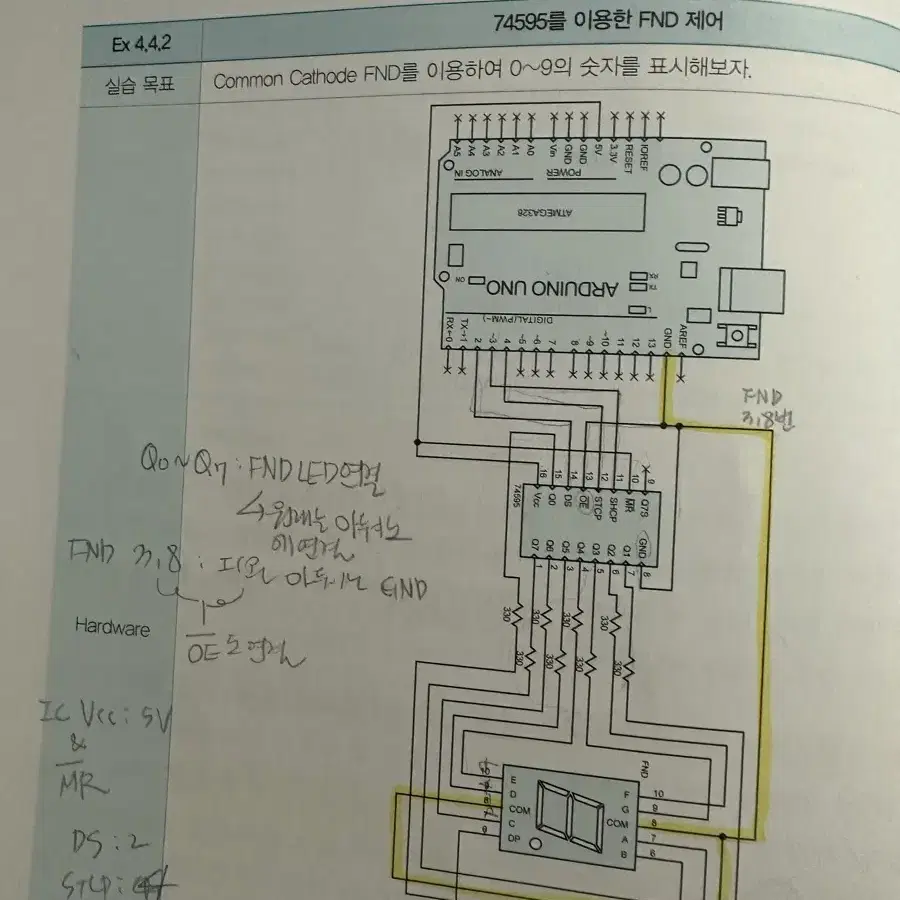 Ex 4.4.2
74595를 이용한 FND 제어
실습 목표
Common Cathode FND를 이용하여 0~9의 숫자를 표시해보자.
A5 A4 A3 A2 A1 A0 Vin GND GND 5V 3.3V RESET IOREF
ANALOG IN POWER
ATMEGA328
ON
ARDUINO UNO
RX
TX
L
DIGITAL(PWM~)
RX←0 TX→1 2 ~3 4 ~5 ~6 7 8 ~9 ~10 ~11 12 13 GND AREF
FND
3,8번
Q0~Q7: FND LED 연결
FND 3,8 : IC와 아두이노 GND
OE도 연결
Hardware
16 15 14 13 12 11 10 9
74595
Vcc Q0 DS OE STCP SHCP MR Q7S
Q7 Q6 Q5 Q4 Q3 Q2 Q1 GND
1 2 3 4 5 6 7 8
330 330 330 330
330 330 330 330
IC Vcc : 5V
&
MR
DS : 2
STCP : 4
FND
E
D
COM
C
DP
F
G
COM
A
B
10
9
8
7
6